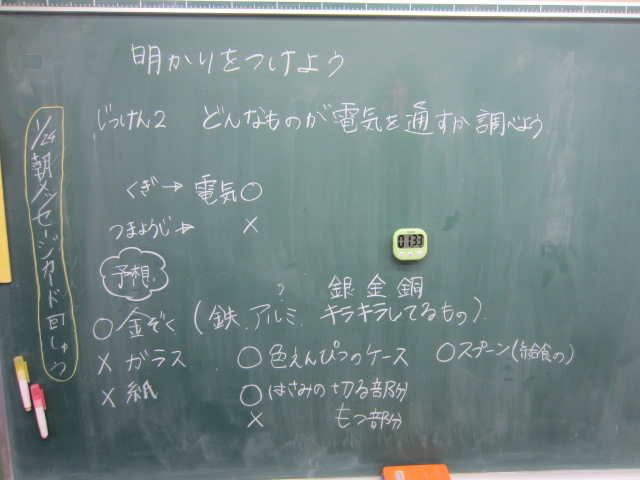 明かりをつけよう
じっけん2 どんなものが電気を通すか調べよう
くぎ→電気○
つまようじ→ ×
予想
? 銀 金 銅
○金ぞく(鉄、アルミ、キラキラしてるもの)
×ガラス ○色えんぴつのケース ○スプーン(給食の)
×紙 ○はさみの切る部分
× もつ部分
1/24 朝メッセージカード回しゅう
01:33